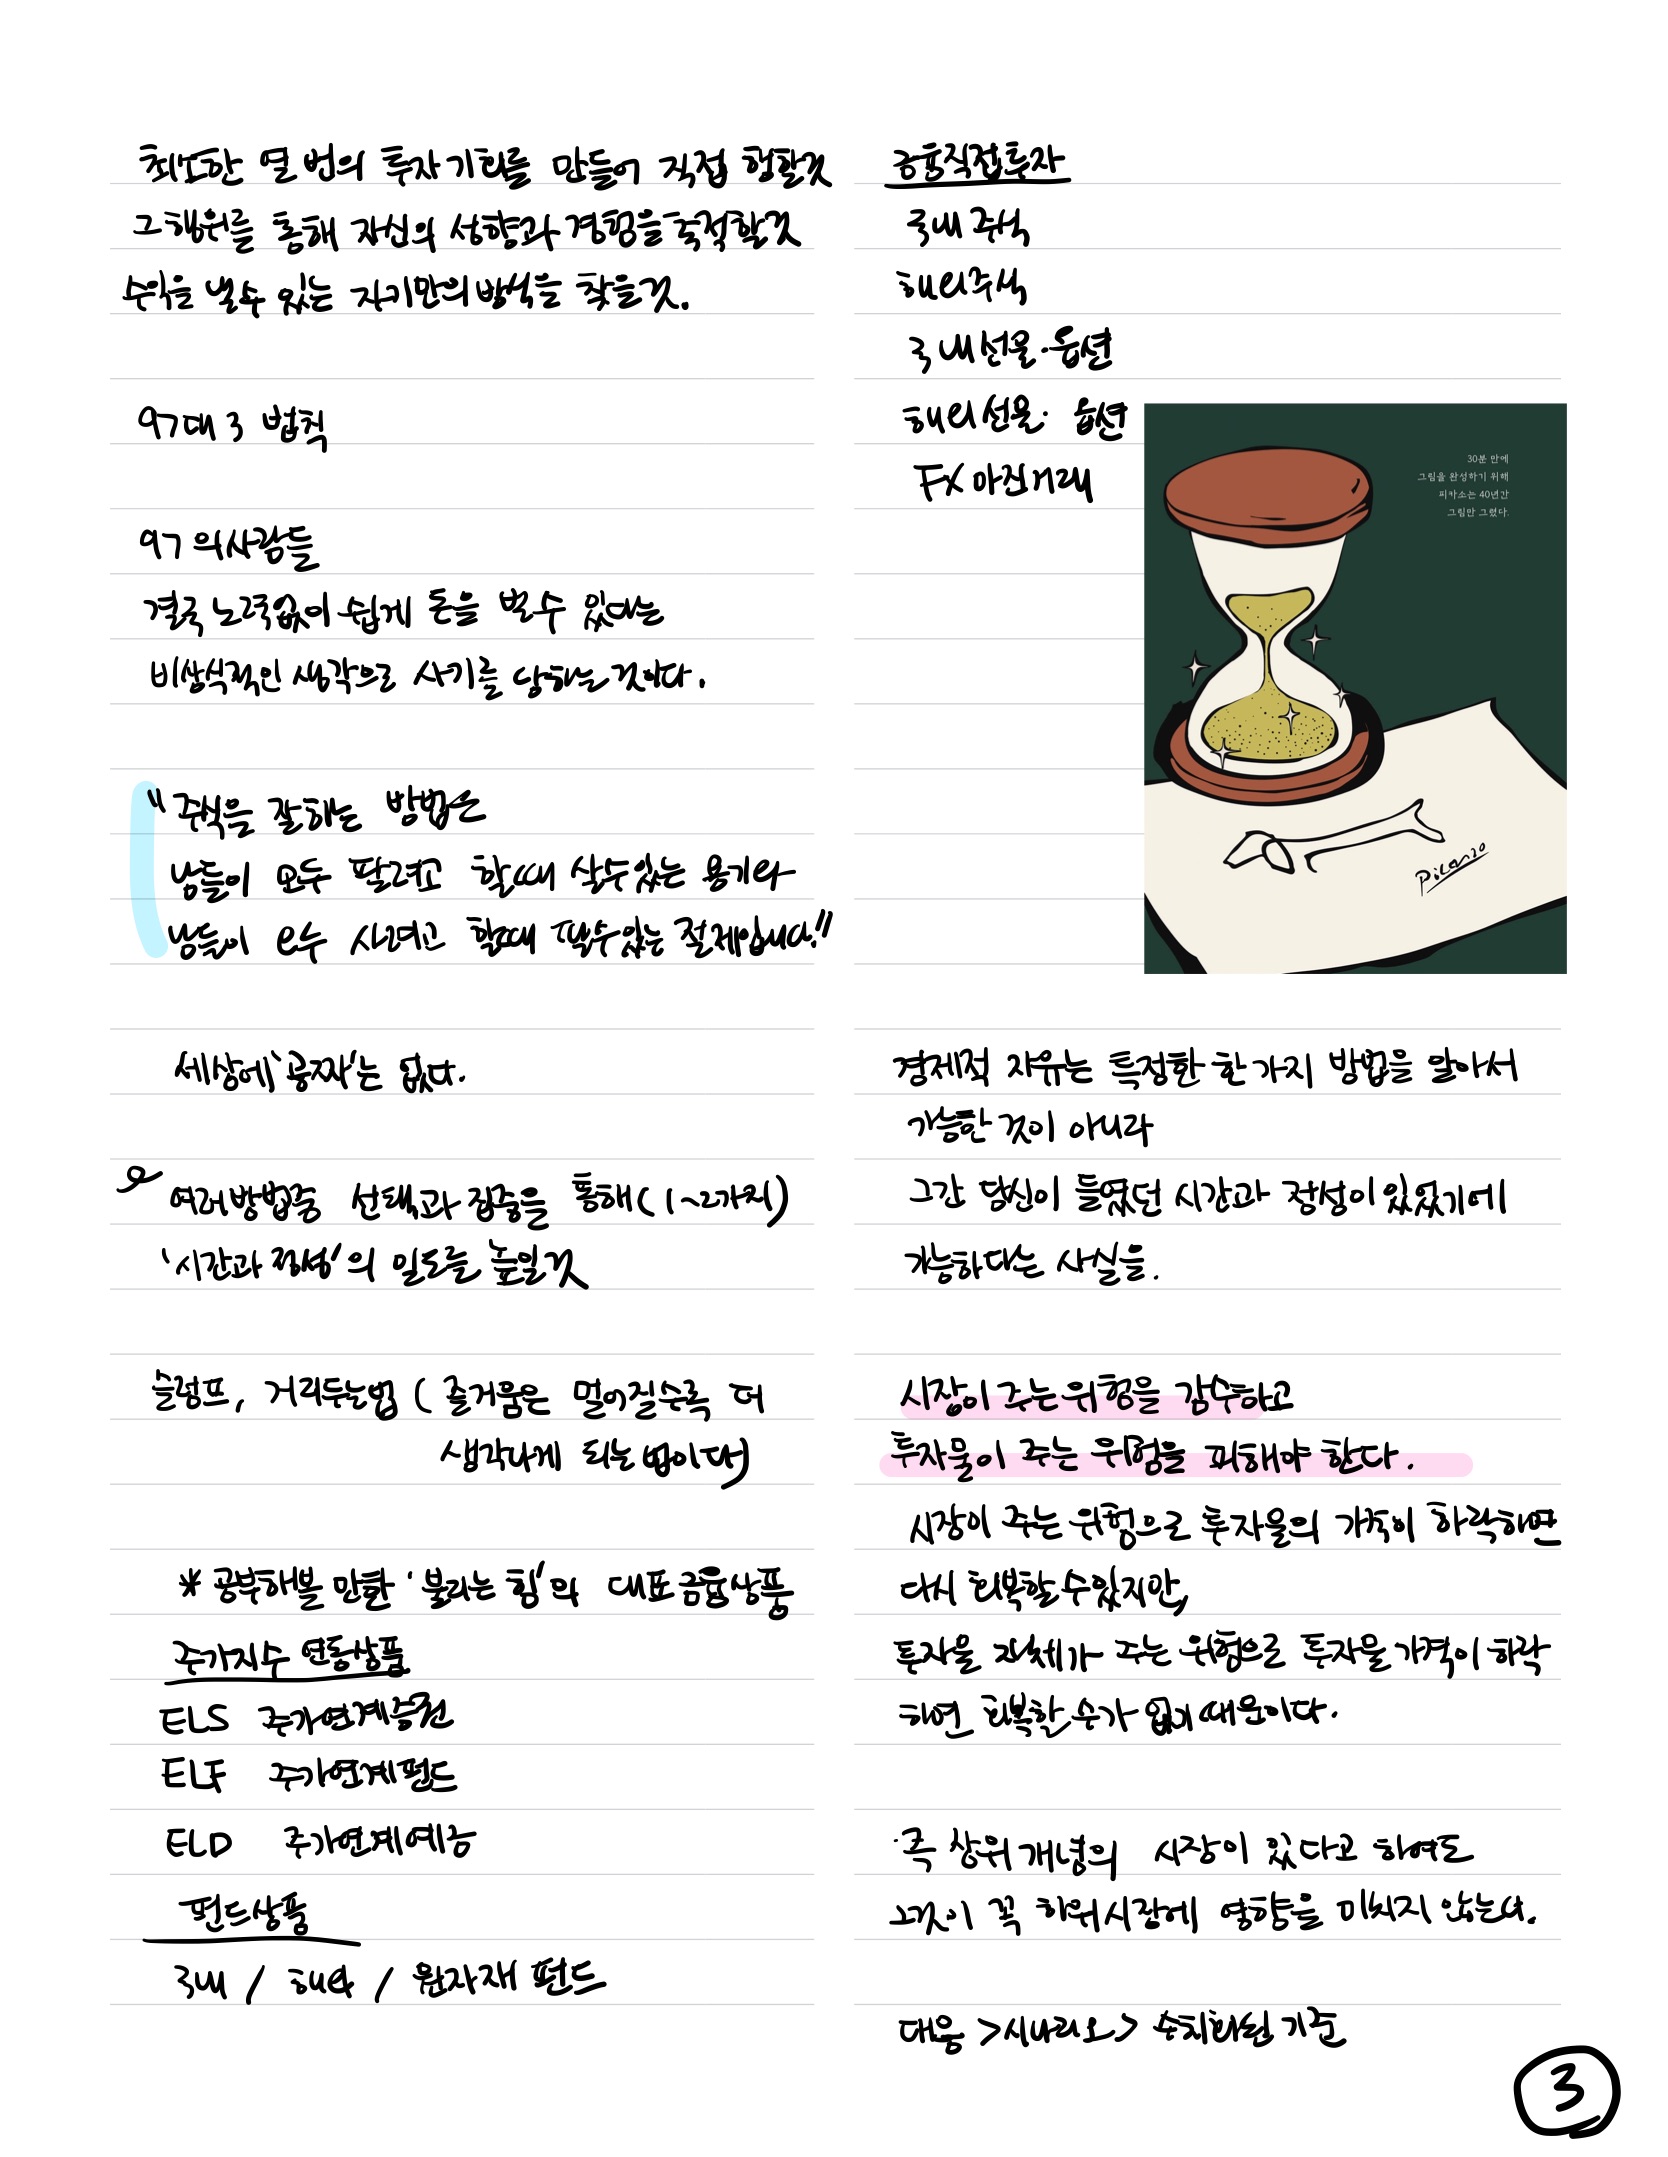 최소한 열 번의 투자기회를 만들어 직접 행할것
그 행위를 통해 자신의 성향과 경험을 축적할것
수익을 낼수 있는 자기만의 방식을 찾을것.
97대 3 법칙
97의 사람들
결국 노력없이 쉽게 돈을 벌수 있다는
비상식적인 생각으로 사기를 당하는 것이다.
"주식을 잘하는 방법은
남들이 모두 팔려고 할때 살수있는 용기와
남들이 모두 사려고 할때 팔수있는 절제입니다."
세상에 '공짜'는 없다.
여러방법중 선택과 집중을 통해 (1~2가지)
'시간과 정성'의 밀도를 높일것
슬럼프, 거리두는법 (즐거움은 멀어질수록 더
생각나게 되는 법이다)
* 공부해볼 만한 '불리는 힘'의 대표금융상품
주가지수 연동상품
ELS 주가연계증권
ELF 주가연계펀드
ELD 주가연계예금
펀드상품
국내 / 해외 / 원자재 펀드
금융직접투자
국내 주식
해외주식
국내선물·옵션
해외선물· 옵션
FX 마진거래
30분 만에
그림을 완성하기 위해
피카소는 40년간
그림만 그렸다.
Picasso
경제적 자유는 특정한 한가지 방법을 알아서
가능한 것이 아니라
그간 당신이 들였던 시간과 정성이 있었기에
가능하다는 사실을.
시장이 주는 위험을 감수하고
투자물이 주는 위험을 피해야 한다.
시장이 주는 위험으로 투자물의 가격이 하락하면
다시 회복할 수있지만,
투자물 자체가 주는 위험으로 투자물 가격이 하락
하면 회복할 수가 없기 때문이다.
즉 상위 개념의 시장이 있다고 하여도
그것이 꼭 하위시장에 영향을 미치지 않는다.
대응 > 시나리오 > 수치화된 기준
3